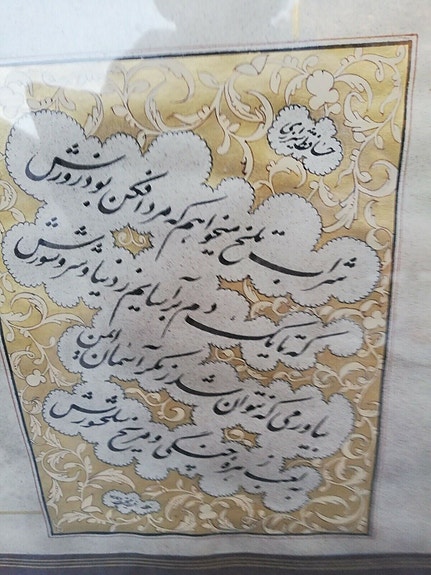 حافظ شیرازی
شراب تلخ میخواهم که مرد افکن بود زورش
که تا یک دم بیاسایم ز دنیا و شر و شورش
بیاور می که نتوان شد ز مکر آسمان ایمن
به لعب زهره چنگی و مریخ سلحشورش